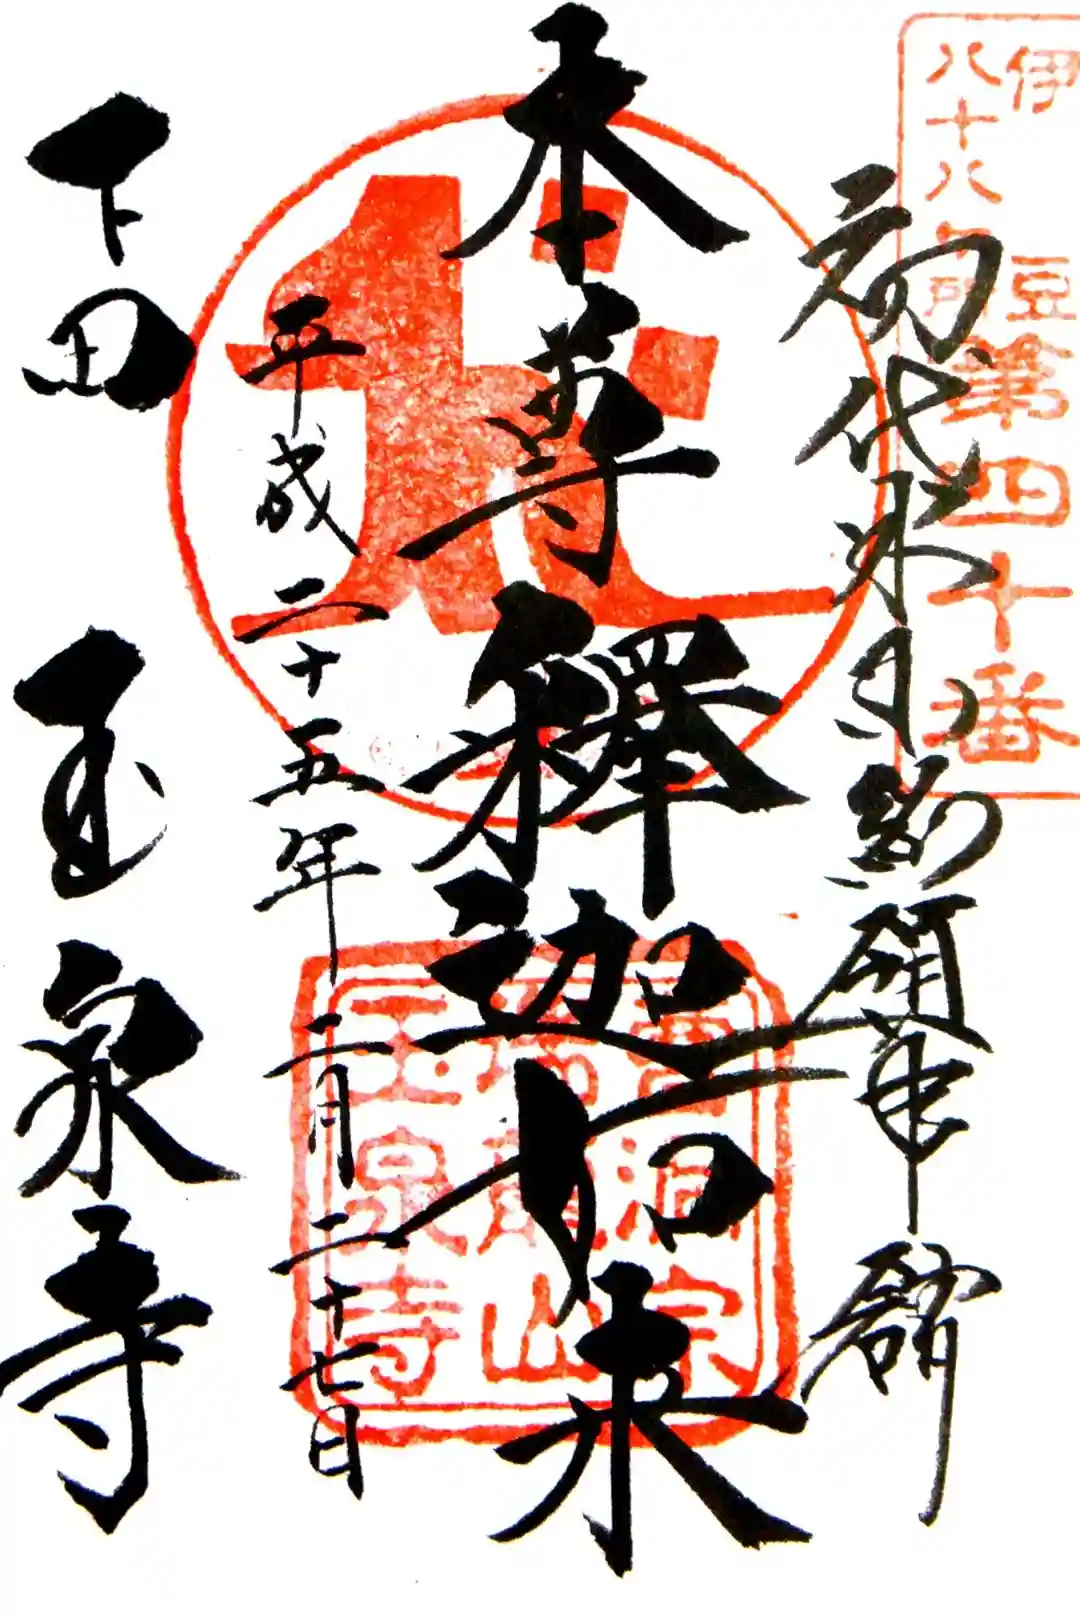 伊豆
八十八ヶ所
第四十番
初代米国総領事館
本尊釋迦如来
平成二十五年二月二十七日
下田 玉泉寺
曹洞宗
瑞龍山
玉泉寺